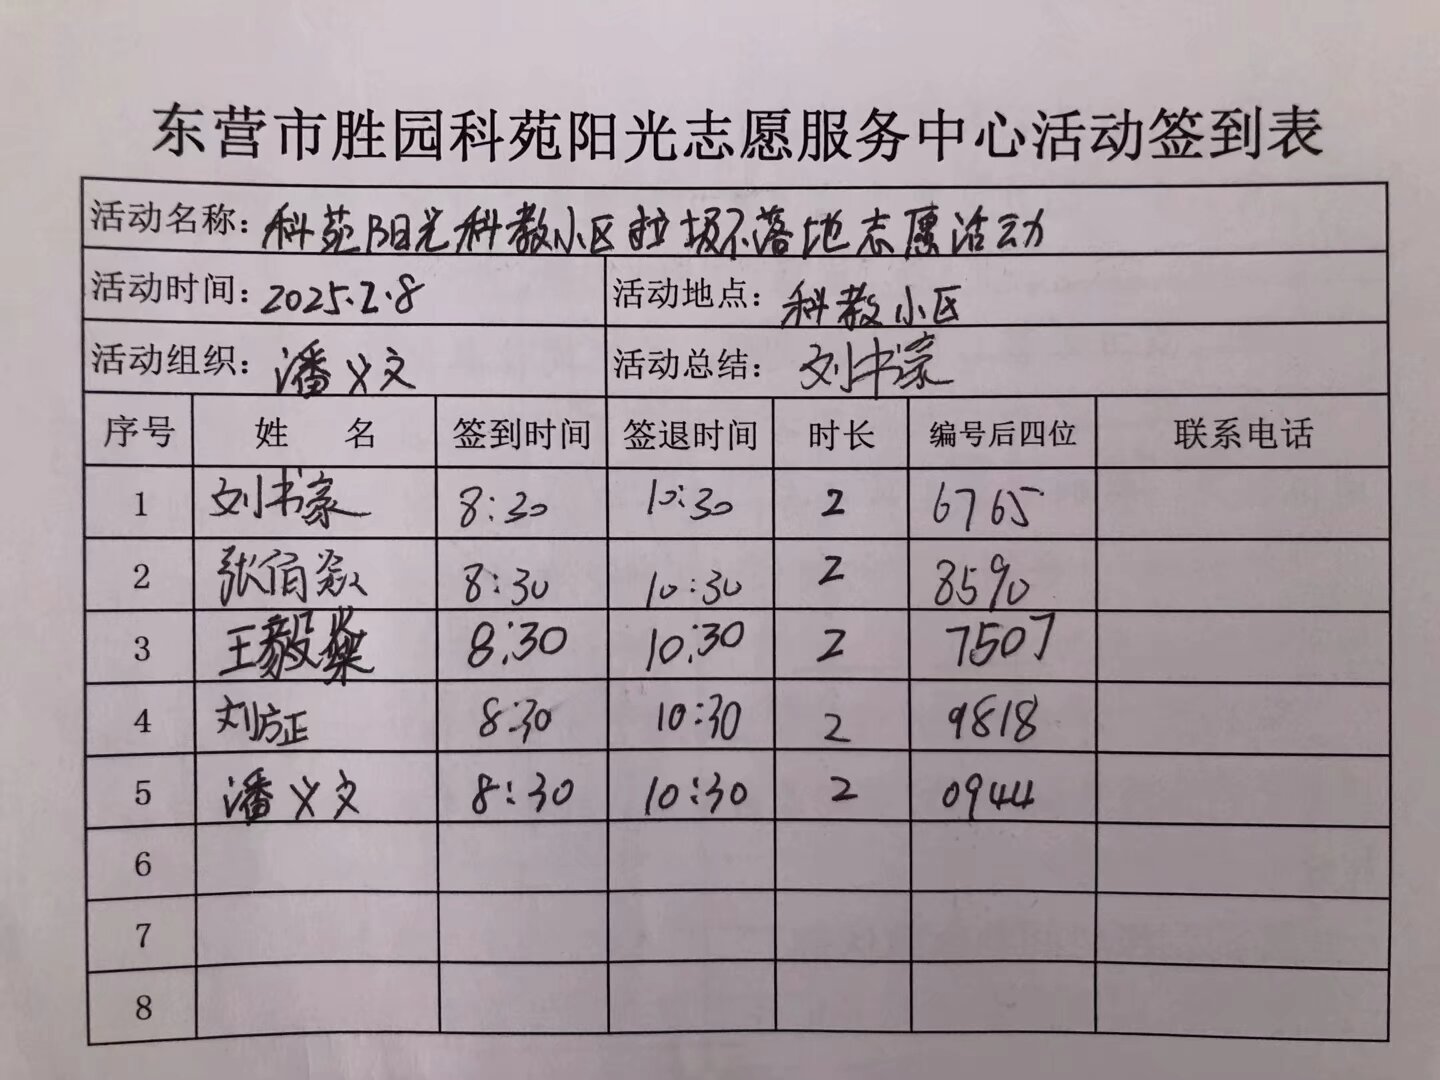 东营市胜园科苑阳光志愿服务中心活动签到表
活动名称: 科苑阳光科教小区垃圾不落地志愿活动
活动时间: 2025.2.8 活动地点: 科教小区
活动组织: 潘义文 活动总结: 刘书豪
序号 姓 名 签到时间 签退时间 时长 编号后四位 联系电话
1 刘书豪 8:30 10:30 2 6765
2 张 8:30 10:30 2 8590
3 王毅燊 8:30 10:30 2 7507
4 刘方正 8:30 10:30 2 9818
5 潘义文 8:30 10:30 2 0944
6
7
8